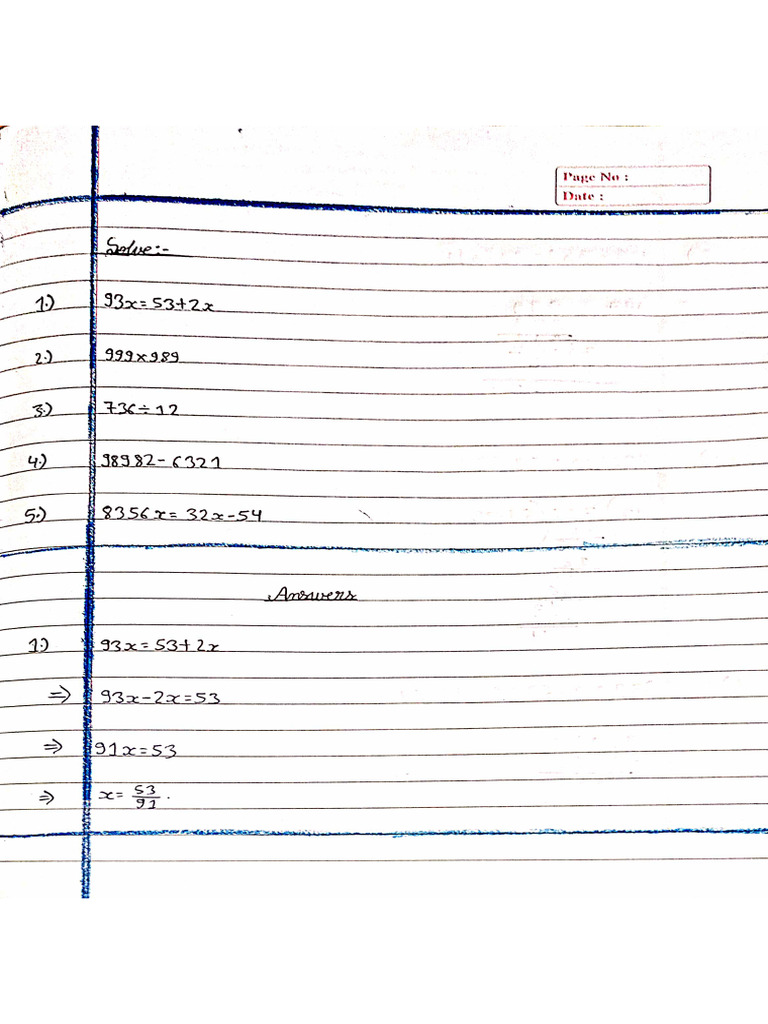 Page No :
Date :
Solve:-
1.) 93x=53+2x
2.) 999×989
3.) 736÷12
4.) 98982-6321
5.) 8356x=32x-54
Answers
1.) 93x=53+2x
⇒ 93x-2x=53
⇒ 91x=53
⇒ x=53/91.